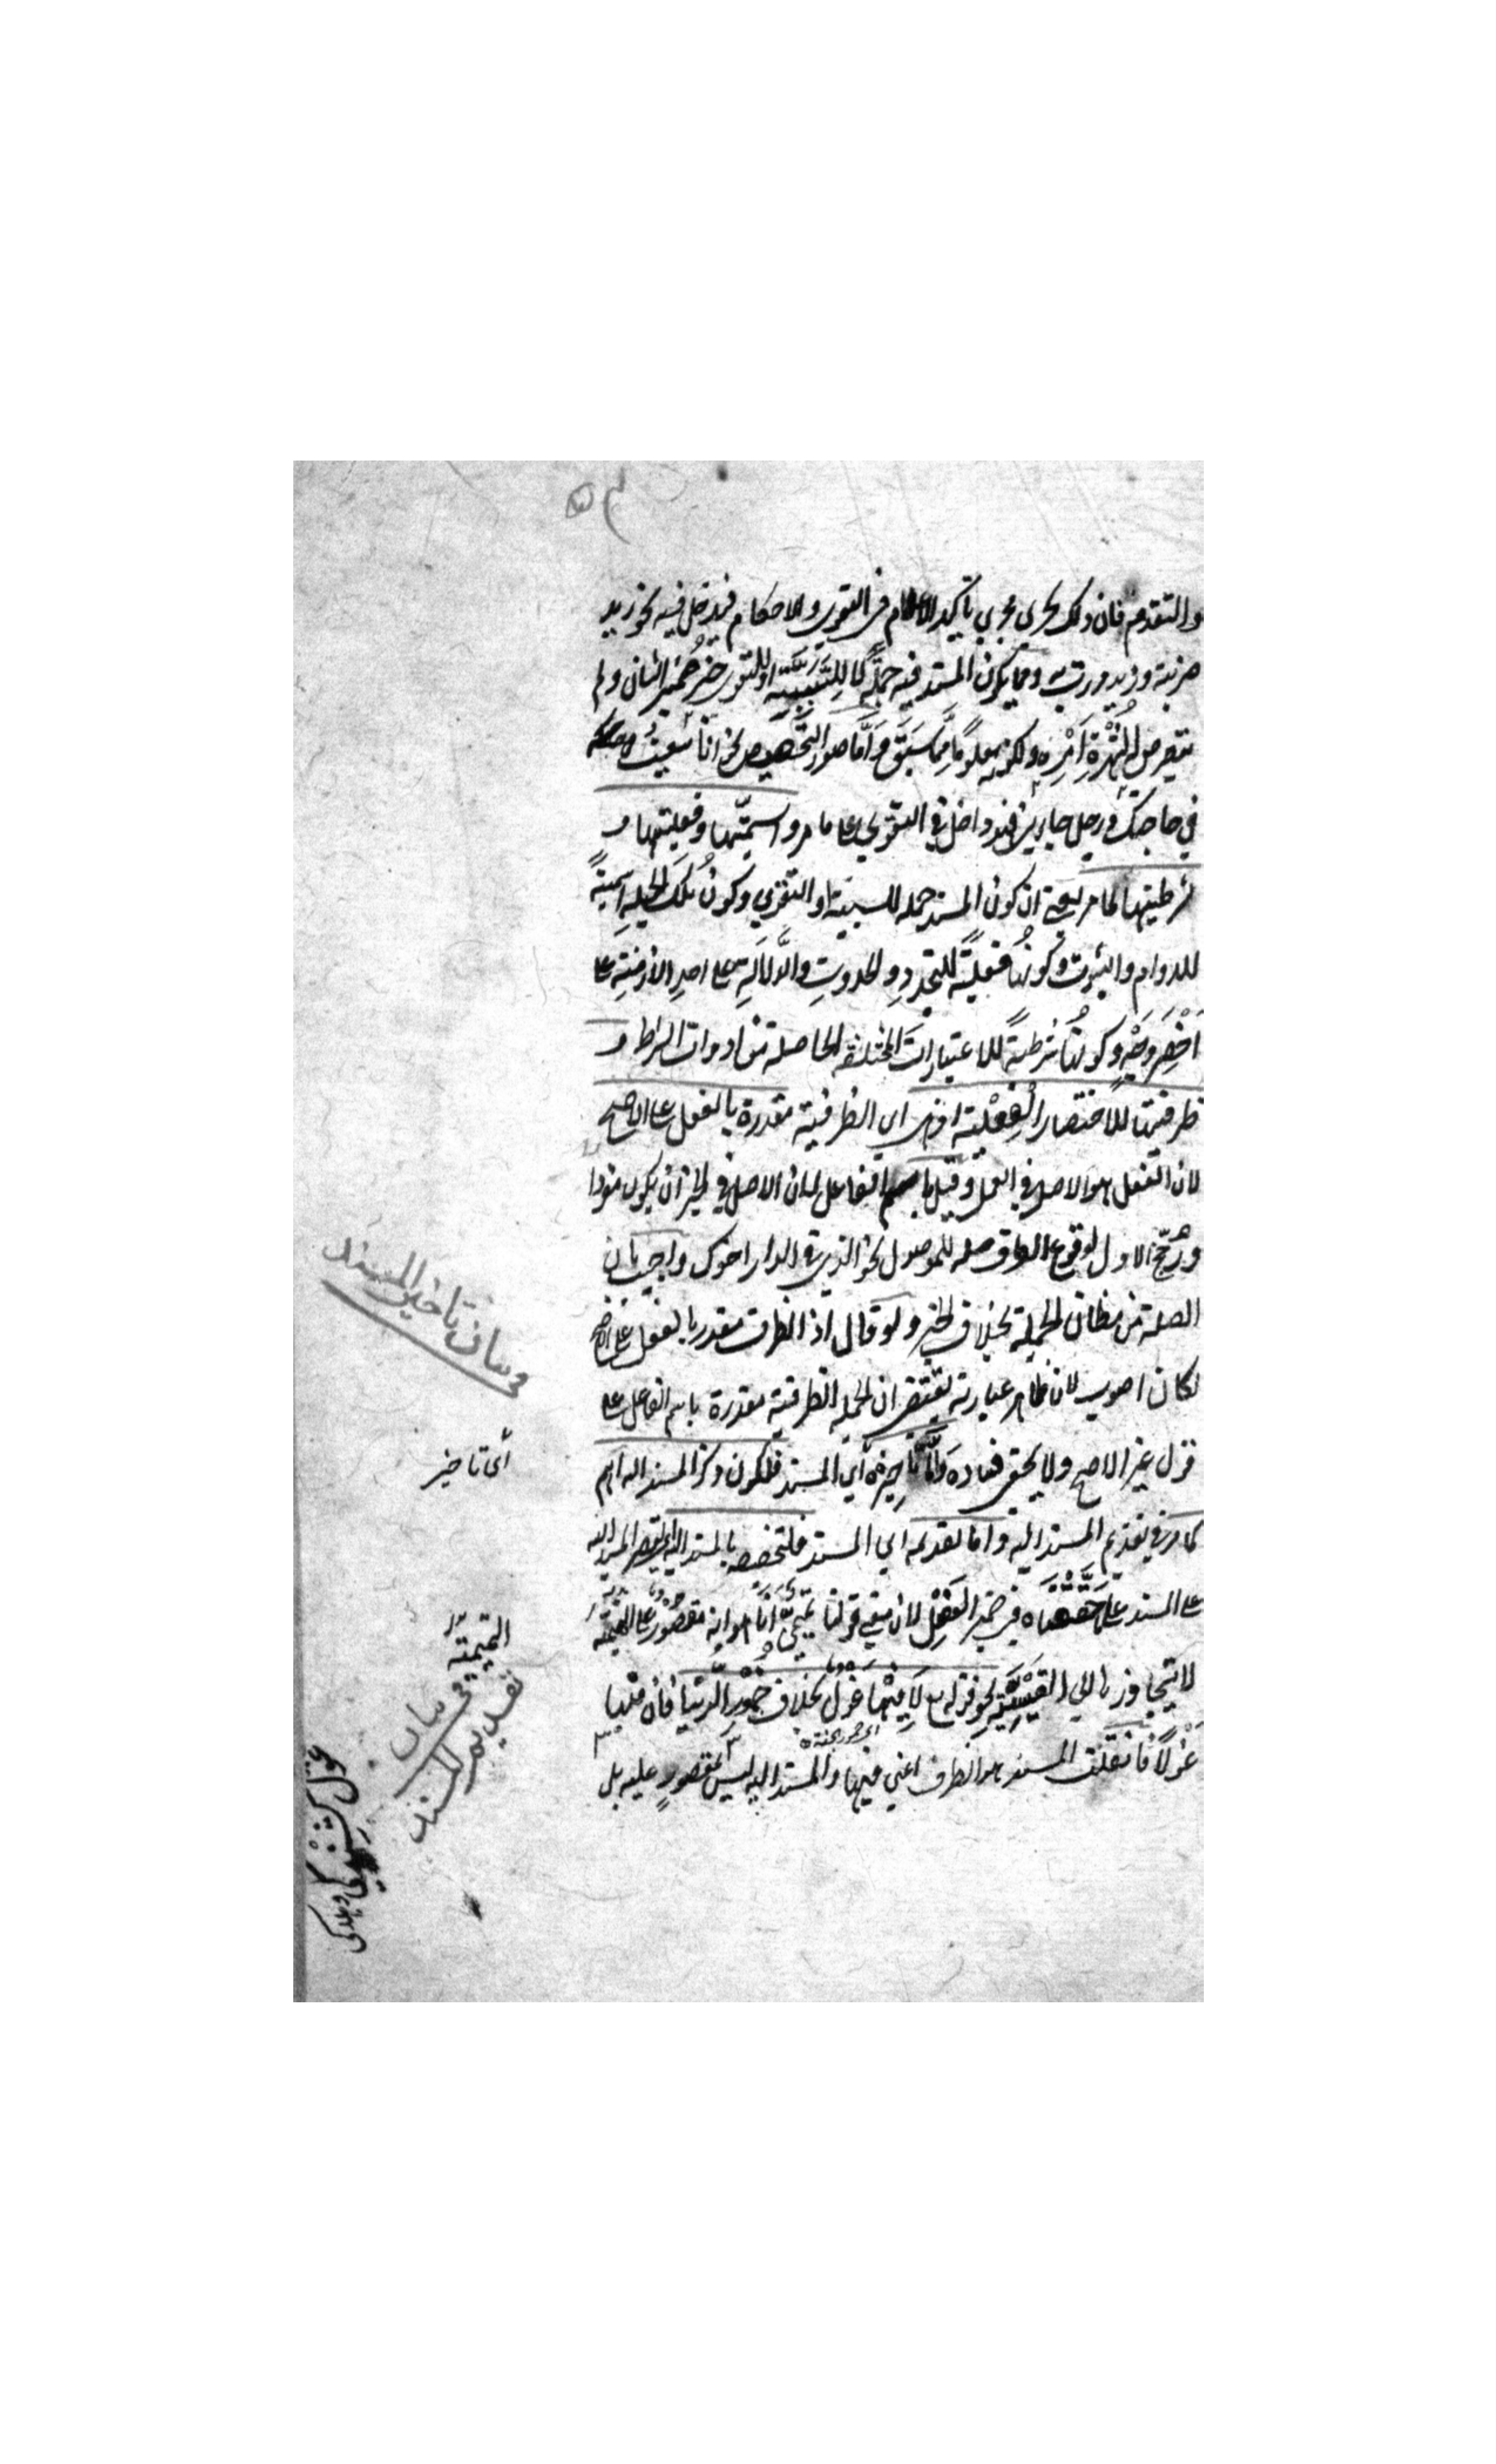 والتقدم فان ذلك يجري مجري تاكيد الاعلام في التقوي والاحكام فيدخل فيه نحو زيد
ضربته وزيد مررت به ومما يكون المسند فيه جملة لا للسببية او للتقوي خبر ضمير الشان ولم
يتعرض له لشهرة امره ولكونه معلوما مما سبق واما صور التخصيص نحو انا سعيت
في حاجتك ورجل جاءني فهو داخل في التقوي على ما مر واسميتها وفعليتها و
شرطيتها لما مر يعني ان كون المسند جملة للسببية او التقوي وكون تلك الجملة اسمية
للدوام والثبوت وكونها فعلية للتجدد والحدوث والدلالة على احد الازمنة على
اخصر وجه وكونها شرطية للاعتبارات المختلفة الحاصلة من ادوات الشرط و
ظرفيتها للاختصار الفعلية اذ هي اي الظرفية مقدرة بالفعل على الاصح
لان الفعل هو الاصل في العمل وقيل باسم الفاعل لان الاصل في الخبر ان يكون مفردا
ورجح الاول لوقوع الظرف صلة للموصول نحو الذي في الدار اخوك واجيب بان
الصلة من مظان الجملة بخلاف الخبر ولو قال اذ الظرف مقدر بالفعل على الاصح
لكان اصوب لان ظاهر عبارته يقتضي ان الجملة الظرفية مقدرة باسم الفاعل على
قول غير الاصح ولا يخفى فساده واما تاخيره اي المسند فلكون ذكر المسند اليه اهم
كما مر في تقديم المسند اليه واما تقديمه اي المسند فلتخصيصه بالمسند اليه اي لقصر المسند اليه
على المسند على ما حققناه في ضمير الفصل لان معنى قولنا تميمي انا هو انه مقصور على التميمية
لا يتجاوزها الى القيسية نحو قوله تع لا فيها غول بخلاف خمور الدنيا فان فيها
اي خمور الجنة
غولا فان قلت المسند هو الظرف اعني فيها والمسند اليه ليس بمقصور عليه بل
في بيان تاخير المسند
أى تاخير
التميمية
في بيان
تقديم المسند